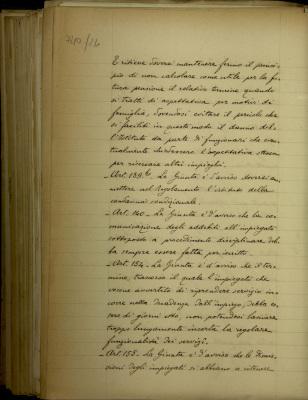 240/16
E ritiene dovere mantenere fermo il princi-
pio di non calcolare come utile per la fu-
tura pensione il relativo termine quando
si tratti di aspettativa per motivi di
famiglia, dovendosi evitare il pericolo che
si faciliti in questo modo il danno del-
l'Istituto da parte di funzionari che even-
tualmente chiedessero l'aspettativa stessa
per ricercare altri impieghi.
- Art. 139 bis La Giunta è d'avviso doversi am-
mettere nel Regolamento l'istituto della
condanna condizionale.
- Art. 140 - La Giunta è d'avviso che la co-
municazione degli addebiti all'impiegato
sottoposto a procedimento disciplinare deb-
ba sempre essere fatta per iscritto.
- Art. 154 - La Giunta è d'avviso che il ter-
mine, trascorso il quale l'impiegato che
venne avvertito di riprendere servizio in-
corre nella decadenza dall'impiego, debba es-
sere di giorni otto, non potendosi lasciare
troppo lungamente incerta la regolare
funzionalità dei servizi.
- Art. 155 - La Giunta è d'avviso che le dimis-
sioni degli impiegati si abbiano a ritenere